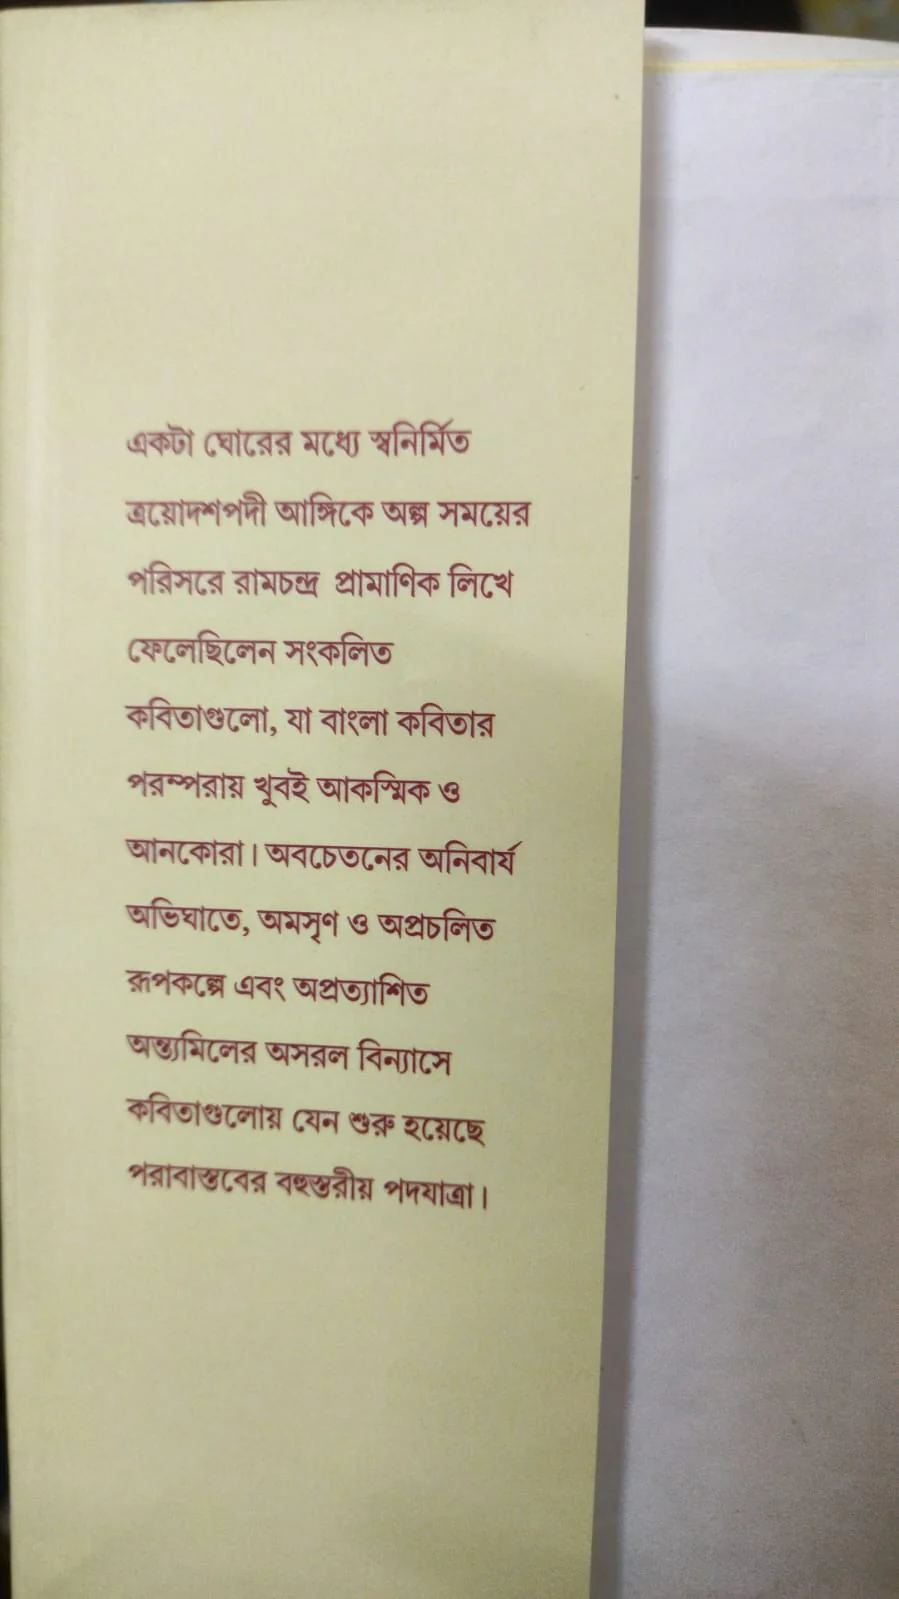 একটা ঘোরের মধ্যে স্বনির্মিত
ত্রয়োদশপদী আঙ্গিকে অল্প সময়ের
পরিসরে রামচন্দ্র প্রামাণিক লিখে
ফেলেছিলেন সংকলিত
কবিতাগুলো, যা বাংলা কবিতার
পরম্পরায় খুবই আকস্মিক ও
আনকোরা। অবচেতনের অনিবার্য
অভিঘাতে, অমসৃণ ও অপ্রচলিত
রূপকল্পে এবং অপ্রত্যাশিত
অন্ত্যমিলের অসরল বিন্যাসে
কবিতাগুলোয় যেন শুরু হয়েছে
পরাবাস্তবের বহুস্তরীয় পদযাত্রা।